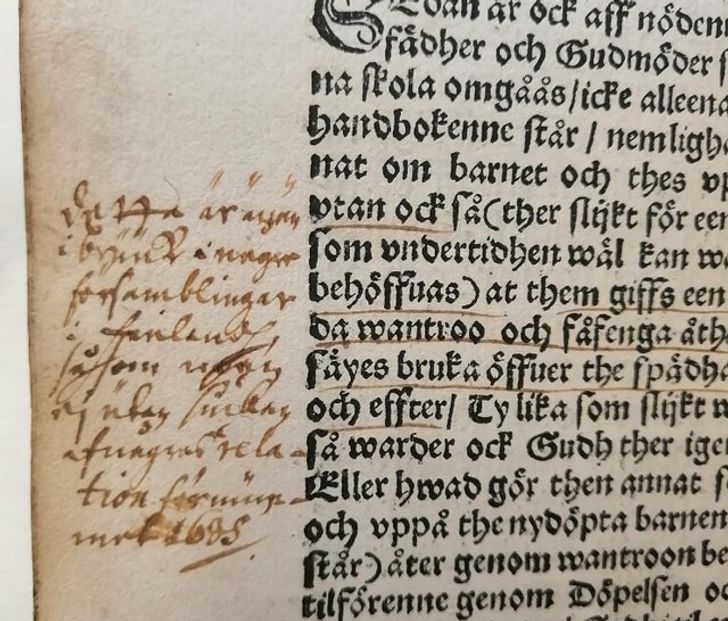 Sedan är ock aff nöden
fädher och Gudmöder s
na skola omgåås/icke alleena
handbokenne står / nemligh
nat om barnet och thes v
vtan ock så(ther slijkt för een
som vndertidhen wäl kan w
behöffuas) at them giffs een
da wantroo och fåfenga åth
säyes bruka öffuer the spädh
och effter/ Ty lika som slijkt w
så warder ock Gudh ther ige
Eller hwad gör then annat s
och vppå the nydöpta barnen
står) åter genom wantroon be
tilförenne genom Döpelsen oc
Detta är även
i bruuk i någre
forsamblingar
i Finland,
såsom
ej uthan
af någras rela-
tion förnum-
met 1635